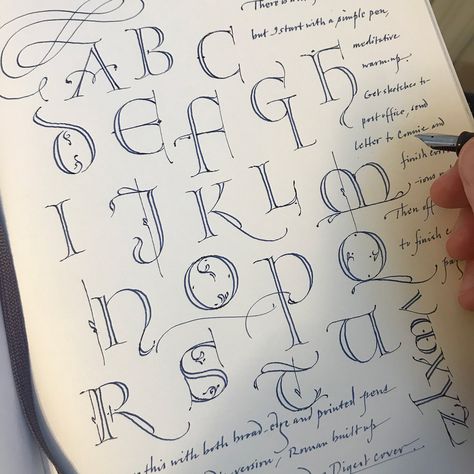 There is
but I start with a simple pen,
meditative
warm-up.
Get sketches to
post office, send
letter to Connie and
finish
Then off
to finish
A B C
D E F G H
I J K L M
N O P Q
R S T U
V W X Y Z
this with both broad-edge and pointed pens
version, Roman built up
Digest cover.